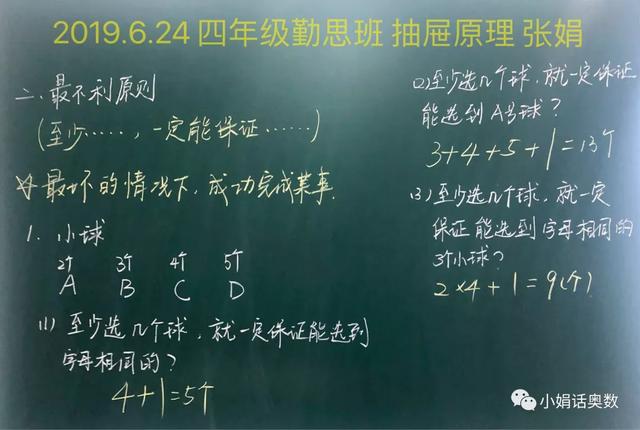 2019.6.24 四年级勤思班 抽屉原理 张娟
二、最不利原则
(至少……，一定能保证……)
☆最坏的情况下，成功完成某事.
1. 小球
2个 3个 4个 5个
A B C D
(1) 至少选几个球，就一定保证能选到
字母相同的？
4+1=5个
(2)至少选几个球，就一定保证
能选到A号球？
3+4+5+1=13个
(3)至少选几个球，就一定
保证能选到字母相同的
3个小球？
2×4+1=9(个)
小娟话奥数